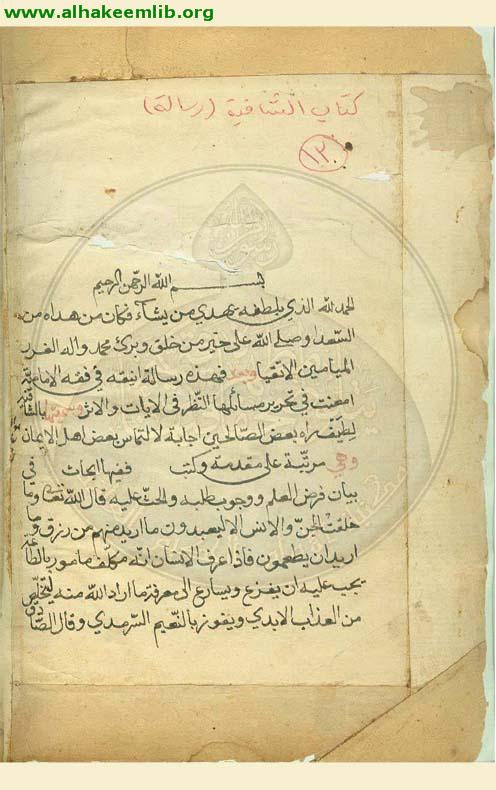 www.alhakeemlib.org
كتاب الشافية (رسالة)
١٢٠
بسم الله الرحمن الرحيم
الحمد لله الذي بلطفه يهدي من يشآء فكان من هداه من
السعداء وصلى الله على خير من خلق وبرئ محمد واله الغرر
الميامين الاتقياء وبعد فهذه رسالة انيقه في فقه الامامية
امعنت في تحرير مسائلها النظر في الايات والاثر وسميتها بالشافية
بعض الصالحين اجابة لالتماس بعض اهل الايمان
وهي مرتبة على مقدمة وكتب فيها ابحاث في
بيان فرض العلم ووجوب طلبه والحث عليه قال الله تعا وما
خلقت الجن والانس الا ليعبدون ما اريد منهم من رزق وما
اريد ان يطعمون فاذا عرف الانسان انه مكلف مامور بالطاعة
يجب عليه ان يفزع ويسارع الى معرفة ما اراد الله منه ليتخلص
من العذاب الابدي ويفوز بالنعيم السرمدي وقال الصادق